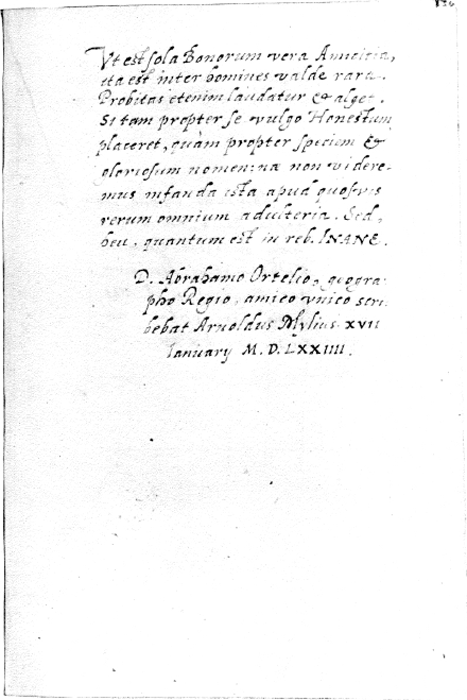 136
Vt est sola Bonorum vera Amicitia,
ita est inter homines valde rara.
Probitas etenim laudatur & alget.
Si tam propter se vulgo Honestum
placeret, quàm propter speciem &
gloriosum nomen: næ non videre-
mus infanda ista apud quosvis
rerum omnium adulteria. Sed,
heu, quantum est in reb. INANE.
D. Abrahamo Ortelio, geogra-
pho Regio, amico vnico scri-
bebat Arnoldus Mylius XVII
Ianuarij M. D. LXXIIII.